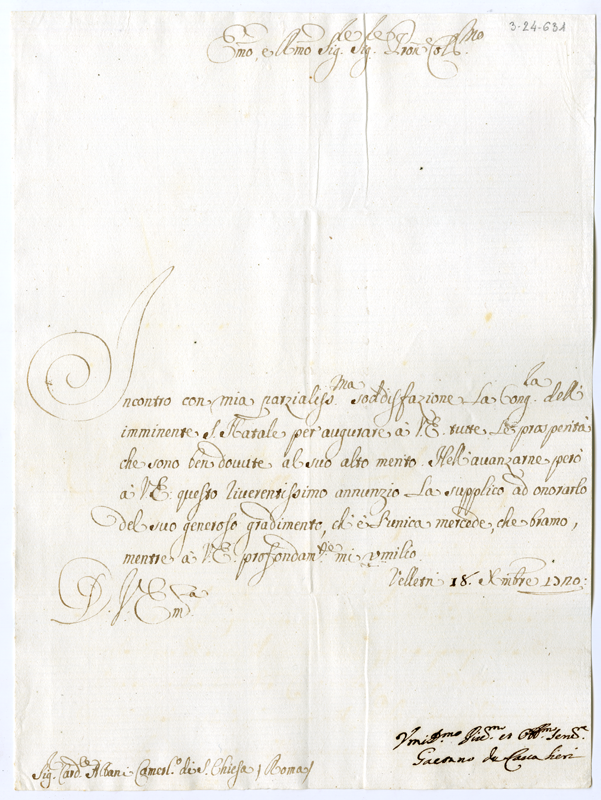 3-24-631
Em̃o, e Rm̃o Sig. Sig. Pron̄e Col.mo
Incontro con mia parzialiss.ma soddisfazione La Cong.la dell'
imminente S. Natale per augurare à V.E. tutte Le prosperità
che sono ben dovute al suo alto merito. Nell'avanzarne però
à V.E. questo riverentissimo annunzio La supplico ad onorarlo
del suo generoso gradimento, ch'è l'unica mercede, che bramo,
mentre à V.E. profondam.te mi umilio.
Velletri 18. Xmbre 1720:
D. V. Em.a
Umiliss.mo Div.mo et Obb.mo Serv.e
Gaetano de Cavalieri
Sig. Card.e Albani Camerl.o di S. Chiesa / Roma /